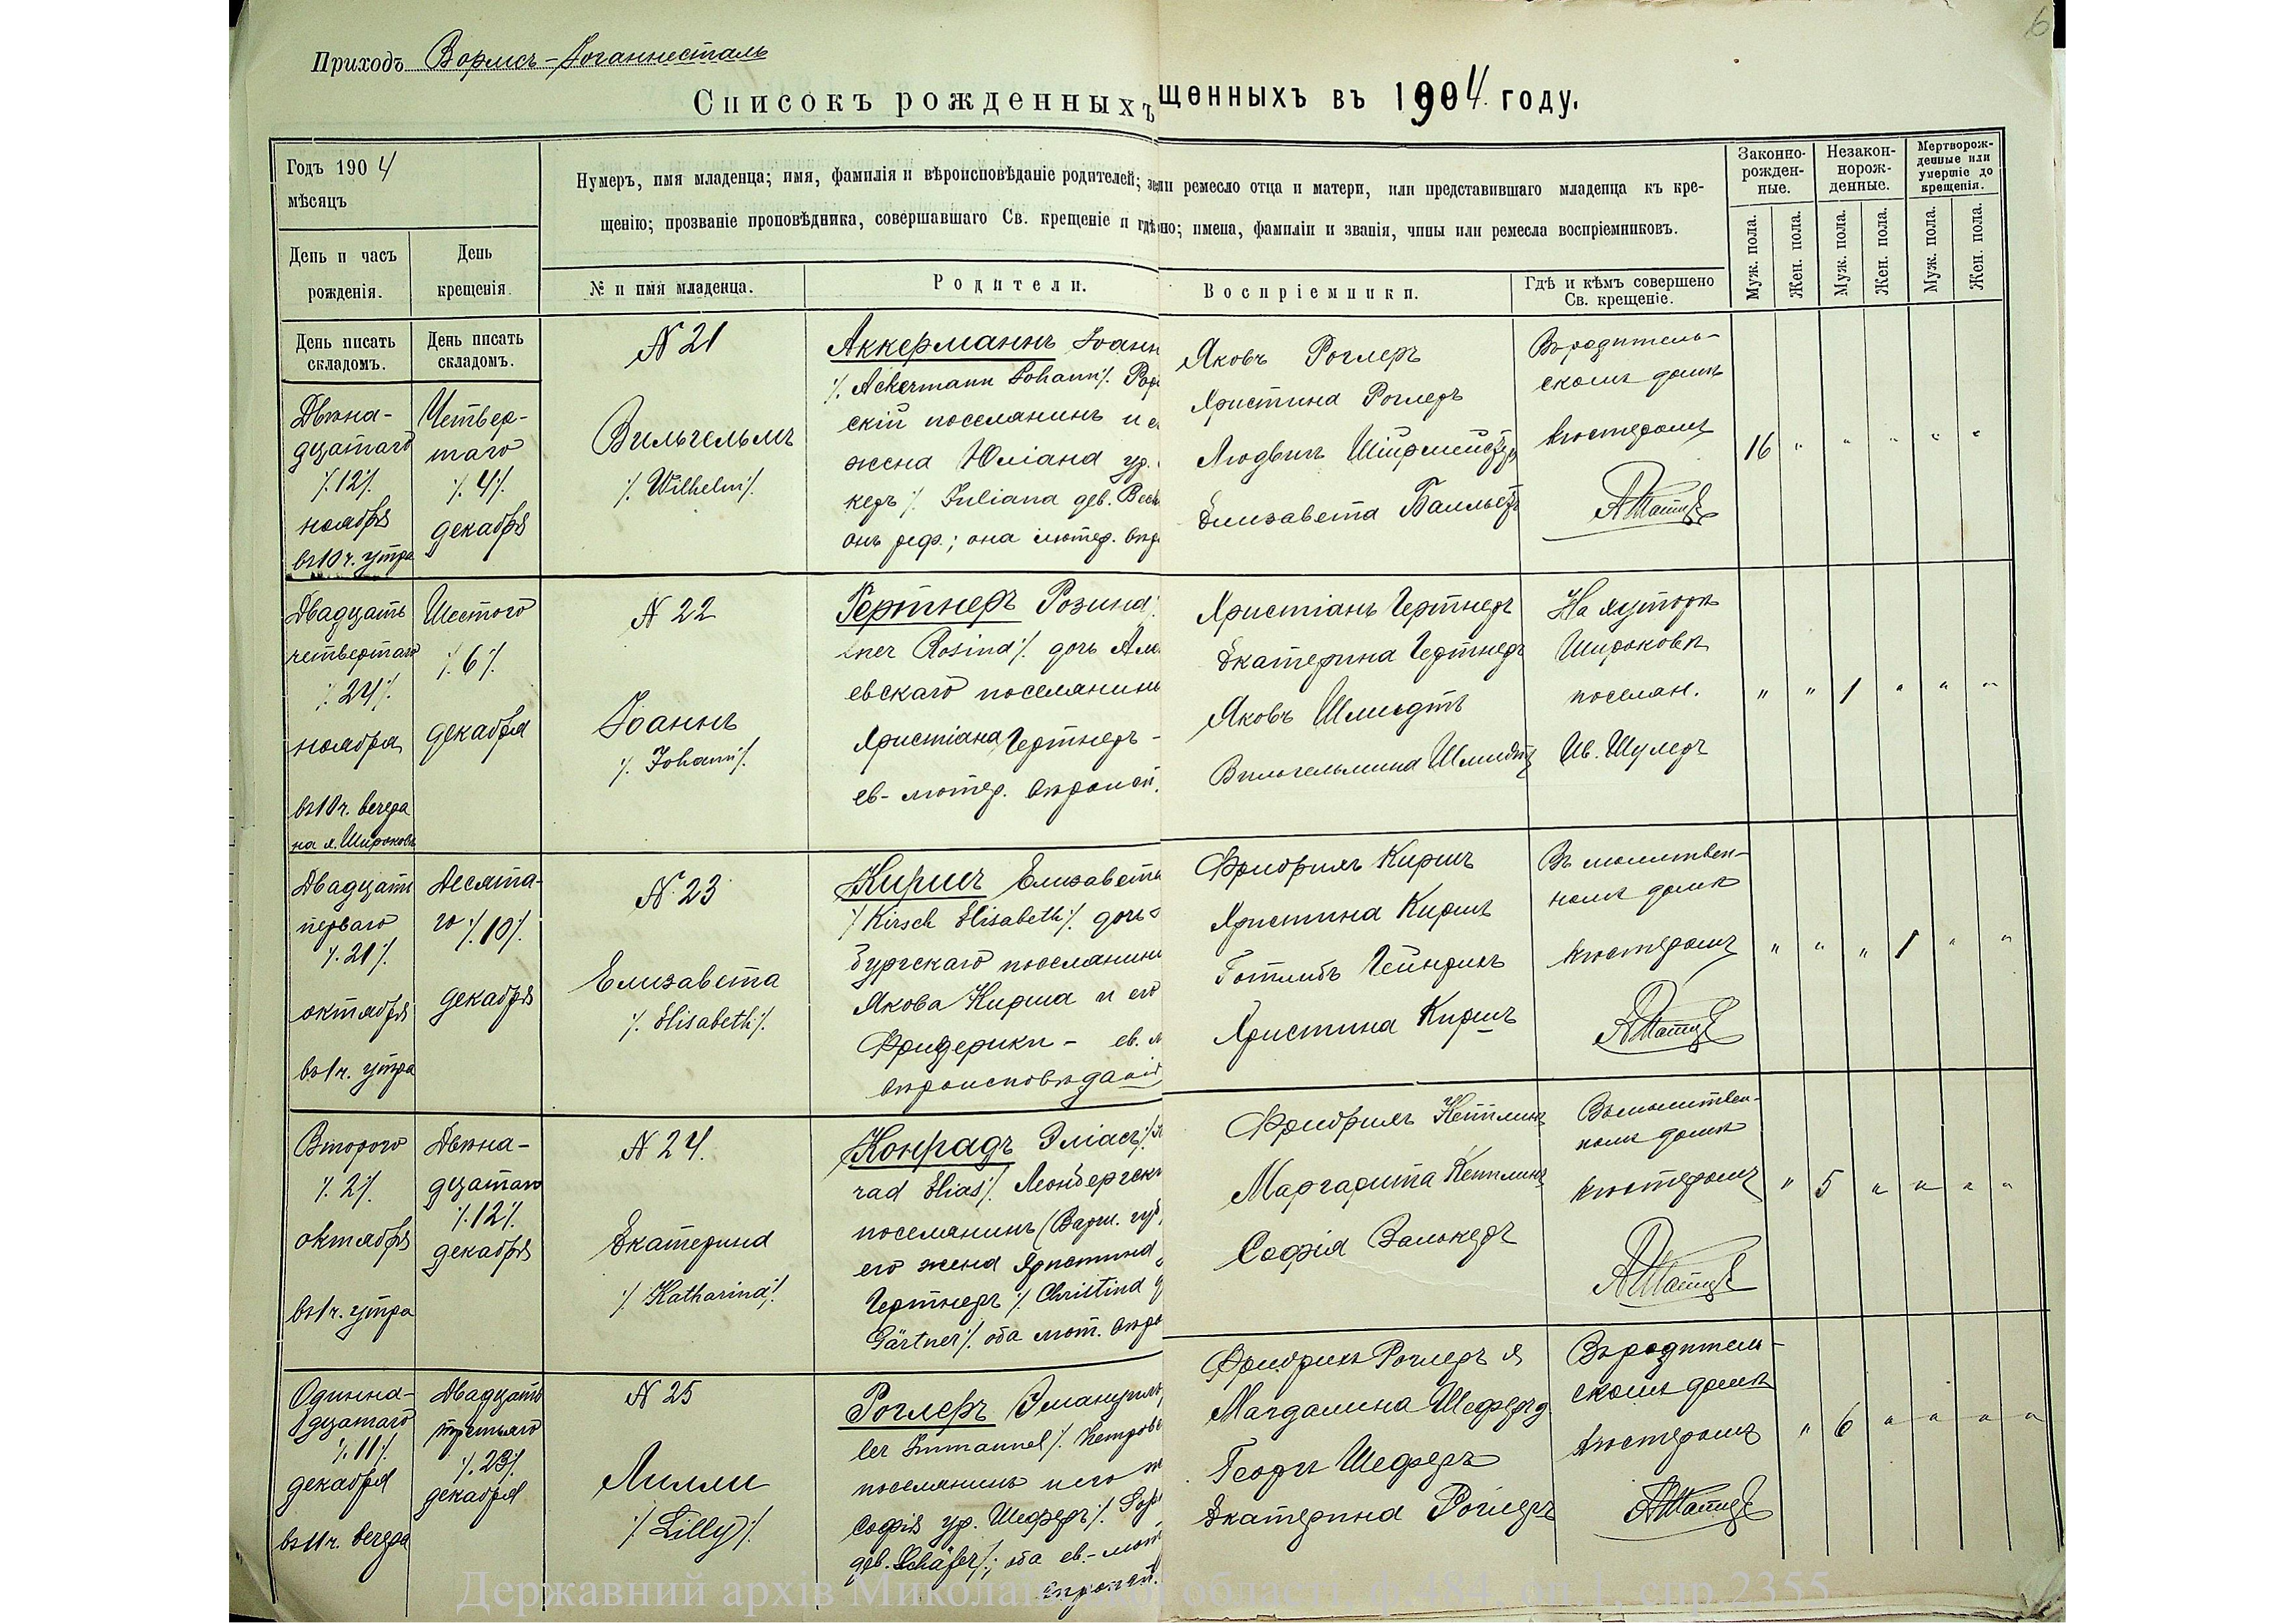 Приходъ Вормсъ-Іоаннесталь
6
Списокъ рожденныхъ
щенныхъ въ 1904 году.
Годъ 1904
мѣсяцъ
Нумеръ, имя младенца; имя, фамилія и вѣроисповѣданіе родителей;
или ремесло отца и матери, или представившаго младенца къ кре-
щенію; прозваніе проповѣдника, совершавшаго Св. крещеніе и гдѣ
но; имена, фамиліи и званія, чины или ремесла воспріемниковъ.
Законно-
рожден-
ные.
Незакон-
норож-
денные.
Мертворож-
денные или
умершіе до
крещенія.
Муж. пола.
Жен. пола.
Муж. пола.
Жен. пола.
Муж. пола.
Жен. пола.
День и часъ
рожденія.
День
крещенія
№ и имя младенца.
Родители.
Воспріемники.
Гдѣ и кѣмъ совершено
Св. крещеніе.
День писать
складомъ.
День писать
складомъ.
Двѣна-
дцатаго
/.12/.
ноября
въ 10 ч. утра
Четвер-
таго
/.4/.
декабря
N 21
Вильгельмъ
/. Wilhelm/.
Аккерманнъ Іоанн
/. Ackermann Johann/. Рор
скій поселянинъ и е
жена Юліана ур.
керъ /. Juliana дев. Beck
онъ реф.; она лютер. вѣр
Яковъ Роглеръ
Христина Роглеръ
Людвигъ
Елизавета
Въ родитель-
скомъ домѣ
кюстеромъ
16 " " " " "
Двадцать
четвертаго
/.24/.
ноября
въ 10 ч. вечера
на х. Широковѣ
Шестого
/.6/.
декабря
N 22
Іоаннъ
/. Johann/.
Гертнеръ Розина
tner Rosina/. дочь
евскаго поселянина
Христіана Гертнеръ -
ев-лютер. вѣроисп.
Христіанъ Гертнеръ
Екатерина Гертнеръ
Яковъ Шмидтъ
Вильгельмина Шмидтъ
На хуторѣ
Широковѣ
поселян.
Ив. Шулеръ
" " 1 " " "
Двадцать
перваго
/.21/.
октября
въ 1 ч. утра
Десята-
го /.10/.
декабря
N 23
Елизавета
/. Elisabeth/.
Киршъ Елизавета
/. Kirsch Elisabeth/. дочь
бургскаго поселянина
Якова Кирша и его
Фридерики - ев. л
вѣроисповѣданія
Фридрихъ Киршъ
Христина Киршъ
Готлибъ Гейнрихъ
Христина Киршъ
Въ молитвен-
номъ домѣ
кюстеромъ
" " " 1 " "
Второго
/.2/.
октября
въ 1 ч. утра
Двѣна-
дцатаго
/.12/.
декабря
N 24.
Екатерина
/. Katharina/.
Конрадъ Эліасъ
rad Elias/. Леонбергскі
поселянинъ (Варш. губ.
его жена Христина
Гертнеръ /. Christina
Gärtner/. оба лют. вѣро
Фридрихъ Кеттлингъ
Маргарита Кеттлингъ
Софія Валькеръ
Въ молитвен-
номъ домѣ
кюстеромъ
" 5 " " " "
Одинна-
дцатаго
/.11/.
декабря
въ 11 ч. вечера
Двадцать
третьяго
/.23/.
декабря
N 25
Лилли
/. Lilly/.
Роглеръ Эмануилъ
ler Immanuel/.
поселянинъ и его ж
Софія ур. Шеферъ/. Sop
дев. Schäfer/.; оба ев.-лют
вѣроисп.
Фридрихъ Роглеръ
Магдалина Шеферъ
Георгъ Шеферъ
Екатерина Роглеръ
Въ родитель-
скомъ домѣ
кюстеромъ
" 6 " " " "
Державний архів Миколаївської області, ф.484, оп.1, спр.2355